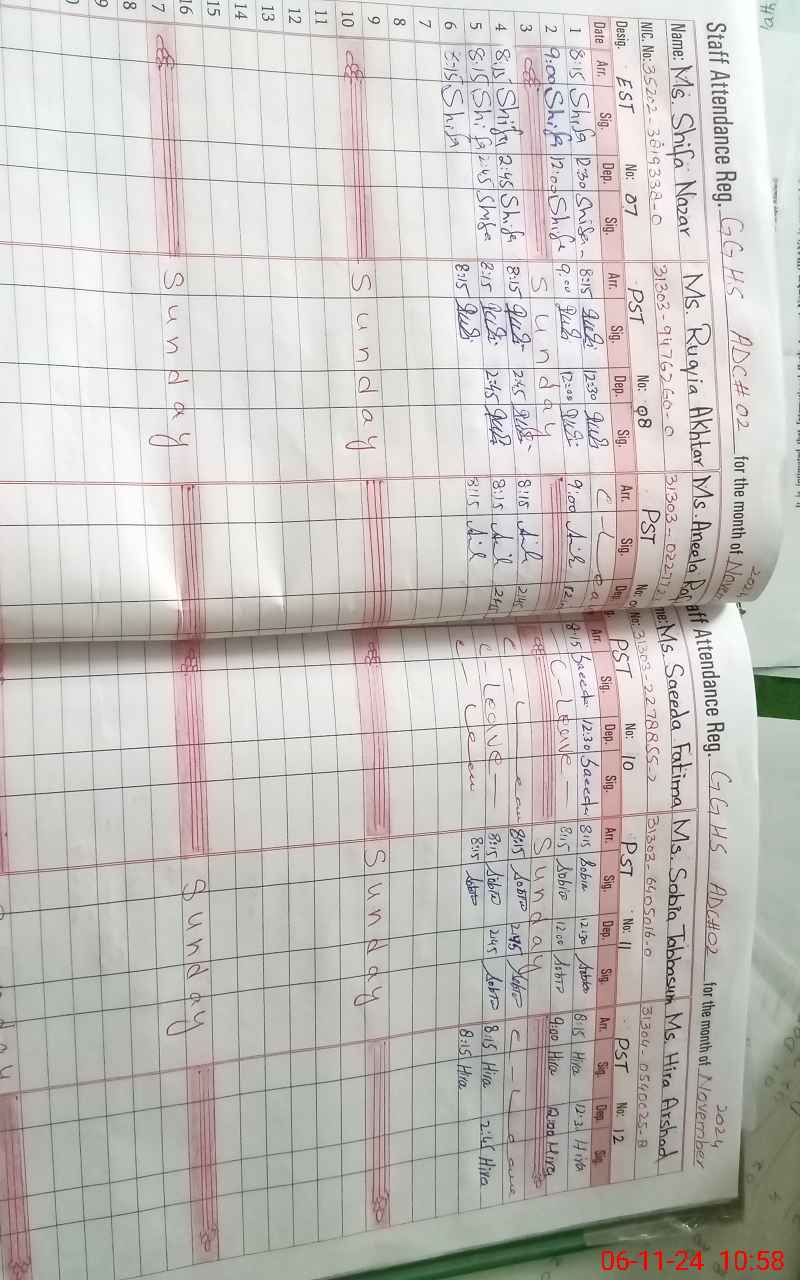 Staff Attendance Reg. GGHS ADC#02 for the month of Novem 2024
Name: Ms. Shifa Nazar Ms. Ruqia Akhtar Ms. Aneela
NIC. No: 35202-3819338-0 31303-9476260-0 31303-022772
Desig. EST No: 07 PST No: 08 PST No:
Date Arr. Sig. Dep. Sig. Arr. Sig. Dep. Sig. Arr. Sig. Dep
1 8:15 Shifa 12:30 Shifa 8:15 12:30 C-Lea
2 9:00 Shifa 12:00 Shifa 9:00 12:00 9:00
3 Sunday
4 8:15 Shifa 2:45 Shifa 8:15 2:45 8:15 2:45
5 8:15 Shifa 2:45 Shifa 8:15 2:45 8:15 2:45
6 8:15 Shifa 8:15 8:15
7
8
9
10 Sunday
11
12
13
14
15
16
17 Sunday
8
9
aff Attendance Reg. GGHS ADC#02 for the month of November 2024
me: Ms. Saeeda Fatima Ms. Sobia Tabbasum Ms. Hira Arshad
No: 31303-2278855-2 31303-6405016-0 31304-0540025-8
PST No: 10 PST No: 11 PST No: 12
Arr. Sig. Dep. Sig. Arr. Sig. Dep. Sig. Arr. Sig. Dep. Sig.
8:15 Saeeda 12:30 Saeeda 8:15 Sobia 12:30 Sobia 8:15 Hira 12:30 Hira
C-Leave 8:15 Sobia 12:00 Sobia 9:00 Hira 12:00 Hira
Sunday
C-Leave 8:15 Sobia 2:45 Sobia C-Leave
C-Leave 8:15 Sobia 2:45 Sobia 8:15 Hira 2:45 Hira
C-Leave 8:15 Sobia 8:15 Hira
Sunday
Sunday
06-11-24 10:58